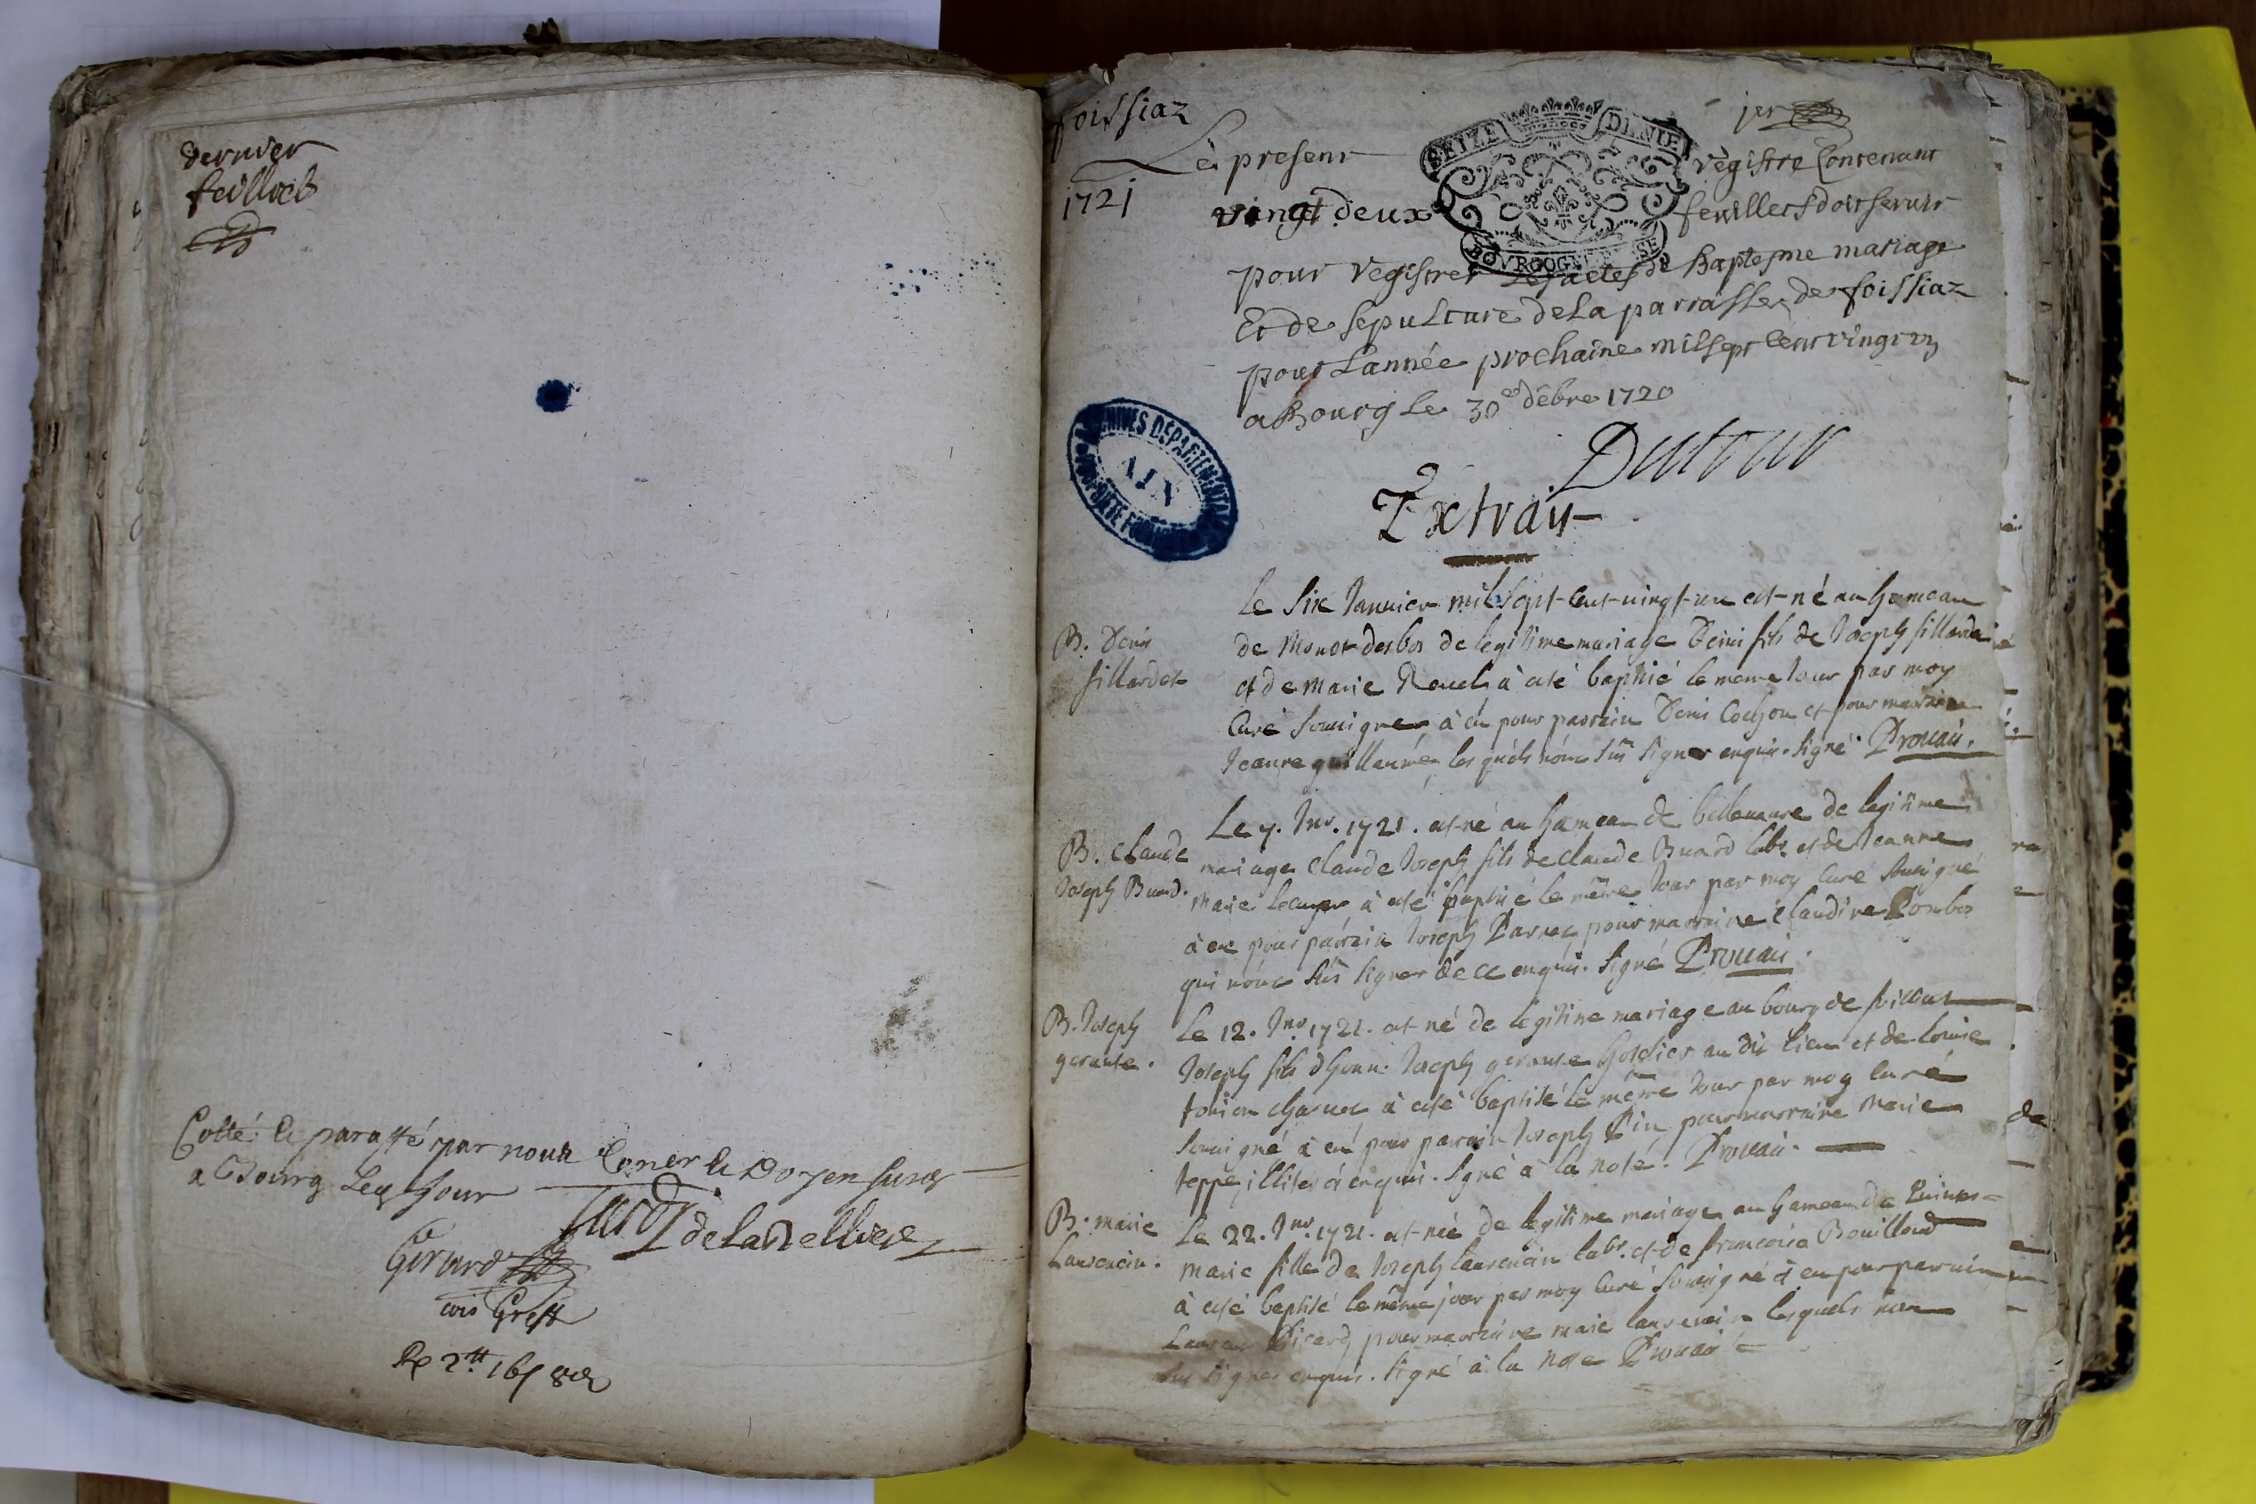 dernier
feilliet
Cotté & paraffé par nous Coner & Doyen sursr
a Bourg led. Jour
de la Velliere
Girard
Greff
foissiaz
1721
jer
Le present registre Contenant
SEIZE DENIE
BOVRGOGNE
vingt deux feuillets doit servir
pour registrer les actes de Baptesme mariage
Et de sepulture de la parrasse de foissiaz
pour Lannée prochaine mil sept Cent vingt un
a Bourg Le 30e debre 1720
ARCHIVES DEPARTEMENTALES
AIN
Extrait
le six Janvier mil sept cent vingt un est né au hameau
B. Denis
sillardet
de Monet desbos de legitime mariage Denis fils de Joseph sillardet
et de Marie Revel à esté baptisé le meme Jour par moy
Curé soussigné à eu pour parrain Denis Cochon et pour marraine
Jeanne guillaumé les quels n'ont sçu signer enquis. signé Prouai.
B. Claude
Joseph Buard.
Le 7. Jnr. 1721. est né au hameau de bellevavre de legitime
mariage Claude Joseph fils de Claude Buard labr et de Jeanne
Marie à esté baptisé le même Jour par moy Curé soussigné
à eu pour parrain Joseph pour marraine Claudine
qui n'ont sçu signer de ce enquis. signé Prouai.
B. Joseph
gerause.
Le 12. Jnr. 1721. est né de legitime mariage au bourg de
Joseph fils d'honn. Joseph gerause hostelier au dit lieu et de Louise
à esté baptisé le même Jour par moy curé
soussigné à eu pour parrain Joseph Pin pour marraine Marie
teppe, illiterés enquis. signé à la note. Prouai.
B. Marie
Laurencin.
Le 22. Jnr. 1721. est née de legitime mariage au hameau de
Marie fille de Joseph laurencin labr. et de francoise Bouilloud
à esté baptisé le même jour par moy Curé soussigné à eu pour parrain
Laurent Picard, pour marraine Marie laurencin lesquels n'on
sçu signer enquis. signé à la note Prouai